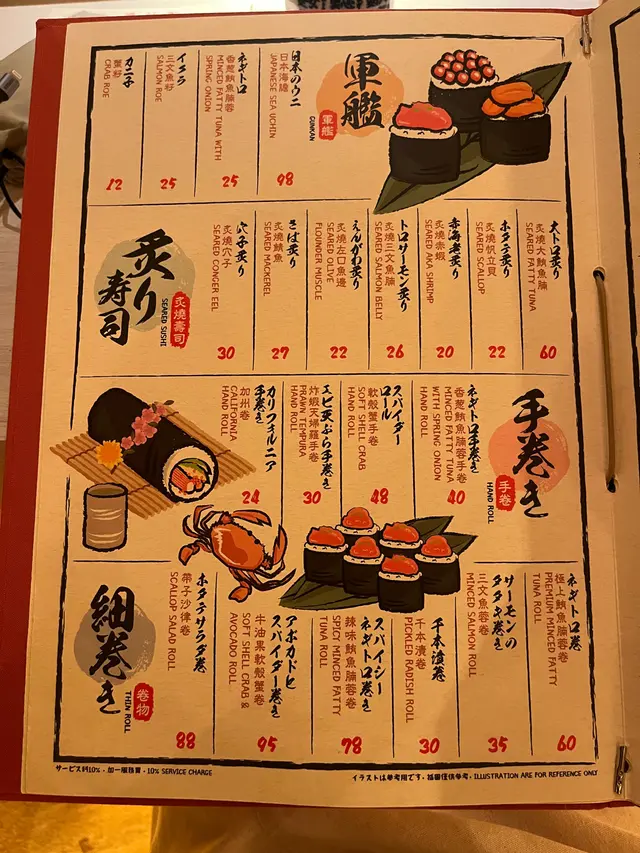 軍艦
軍艦
GUNKAN
日本のウニ
日本海膽
JAPANESE SEA UCHIN
98
ネギトロ
香葱鮪魚腩蓉
MINCED FATTY TUNA WITH
SPRING ONION
25
イクラ
三文魚籽
SALMON ROE
25
カニ子
蟹籽
CRAB ROE
12
炙り寿司
炙燒壽司
SEARED SUSHI
大トロ炙り
炙燒大鮪魚腩
SEARED FATTY TUNA
60
ホタテ炙り
炙燒帆立貝
SEARED SCALLOP
22
赤海老炙り
炙燒赤蝦
SEARED AKA SHRIMP
20
トロサーモン炙り
炙燒三文魚腩
SEARED SALMON BELLY
26
えんがわ炙り
炙燒左口魚邊
SEARED OLIVE
FLOUNDER MUSCLE
22
さば炙り
炙燒鯖魚
SEARED MACKEREL
27
穴子炙り
炙燒穴子
SEARED CONGER EEL
30
手巻き
手卷
HAND ROLL
ネギトロ手巻き
香葱鮪魚腩蓉手卷
MINCED FATTY TUNA
WITH SPRING ONION
40
スパイダー
ロール
軟殼蟹手卷
SOFT SHELL CRAB
HAND ROLL
48
エビ天ぷら手巻き
炸蝦天婦羅手卷
PRAWN TEMPURA
HAND ROLL
30
カリフォルニア
手巻き
加州卷
CALIFORNIA
HAND ROLL
24
細巻き
卷物
THIN ROLL
ネギトロ巻
極上鮪魚腩蓉卷
PREMIUM MINCED FATTY
TUNA ROLL
60
サーモンの
タタキ巻き
三文魚蓉卷
MINCED SALMON ROLL
35
千本漬巻
千本漬卷
PICKLED RADISH ROLL
30
スパイシー
ネギトロ巻き
辣味鮪魚腩蓉卷
SPICY MINCED FATTY
TUNA ROLL
78
アボカドと
スパイダー巻き
牛油果軟殼蟹卷
SOFT SHELL CRAB &
AVOCADO ROLL
95
ホタテサラダ巻
帶子沙律卷
SCALLOP SALAD ROLL
88
サービス料10%・加一服務費・10% SERVICE CHARGE
イラストは参考用です・插圖僅供參考・ILLUSTRATION ARE FOR REFERENCE ONLY